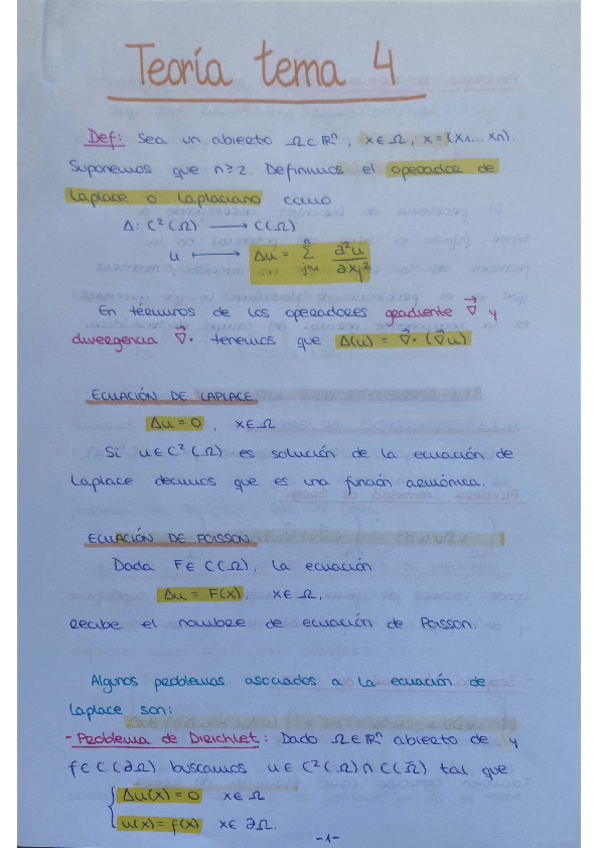 Teoría tema 4
Def: Sea un abierto Ω⊂ℝⁿ, x∈Ω, x=(x₁...xₙ).
Suponemos que n≥2. Definimos el operador de
Laplace o Laplaciano como
Δ: C²(Ω) ⟶ C(Ω)
u ⟼ Δu = Σⁿⱼ₌₁ ∂²u/∂xⱼ²
En términos de los operadores gradiente ∇⃗ y
divergencia ∇⃗· tenemos que Δ(u) = ∇⃗·(∇⃗u)
ECUACIÓN DE LAPLACE
Δu=0, x∈Ω
Si u∈C²(Ω) es solución de la ecuación de
Laplace decimos que es una función armónica.
ECUACIÓN DE POISSON
Dada F∈C(Ω), la ecuación
Δu = F(x), x∈Ω,
recibe el nombre de ecuación de Poisson.
Algunos problemas asociados a la ecuación de
Laplace son:
- Problema de Dirichlet: Dado Ω∈ℝⁿ abierto de y
f∈C(∂Ω) buscamos u∈C²(Ω)∩C(Ω̄) tal que
{ Δu(x)=0 x∈Ω
u(x)=f(x) x∈∂Ω.
-1-